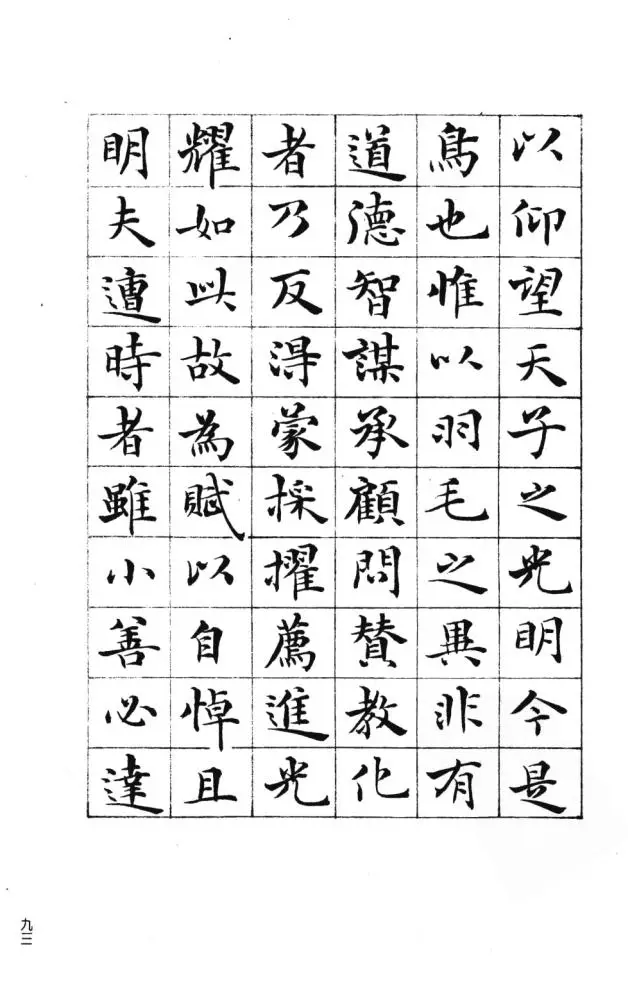 以仰望天子之光明今是
鳥也惟以羽毛之異非有
道德智謀承顧問賛教化
者乃反淂蒙採擢薦進光
耀如此故為賦以自悼且
明夫遭時者雖小善必達
九三